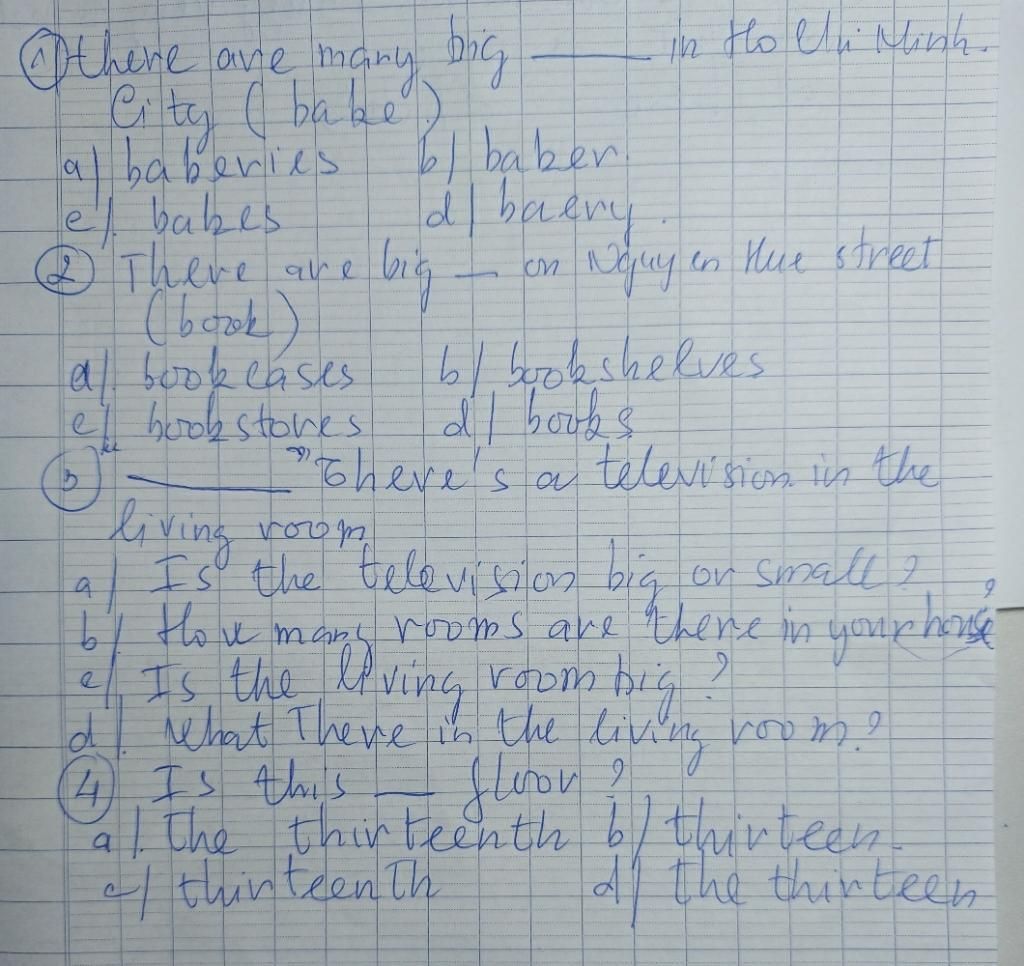 ① there are many big ____ in Ho Chi Minh.
City (bake)
a/ bakeries b/ baker.
c/. bakes d/ baery.
② There are big __ on Nguyen Hue street
(book)
a/. bookcases b/ bookshelves
c/. bookstores d/ books
③ ____ There's a television in the
living room
a/ Is the television big or small?
b/. How many rooms are there in your house?
c/. Is the living room big?
d/. What There in the living room?
④ Is this __ floor?
a/. The thirteenth b/ thirteen.
c/ thirteenth d/ The thirteen